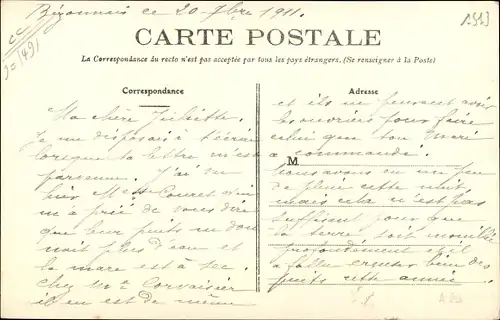 Bézonnais ce 20 9bre 1911.
CARTE POSTALE
La Correspondance du recto n'est pas acceptée par tous les pays étrangers. (Se renseigner à la Poste)
Correspondance
Ma chère Juliette.
Je me disposais à t'écrire
lorsque ta lettre m'est
parvenue. J'ai vu
hier Mme Couret qui
m'a prié de vous dire
que leur puits ne don
nait plus d'eau et
la mare est à sec.
chez Mr Corvaisier
il en est de même
Adresse
et ils ne peuvent avoir
les ouvriers pour faire
celui que ton mari
a commandé.
M
Nous avons eu un peu
de pluie cette nuit
mais cela n'est pas
suffisant pour que
la terre soit mouillée
profondément et il
a fallu creuser bien des
puits cette année